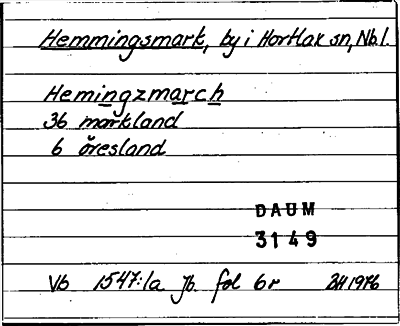 Hemmingsmark, by i Hortlax sn, Nb.l.
Hemingzmarch
36 markland
6 öresland
DAUM
3149
Vb 1547:1a Jb. fol 6r BH 1976